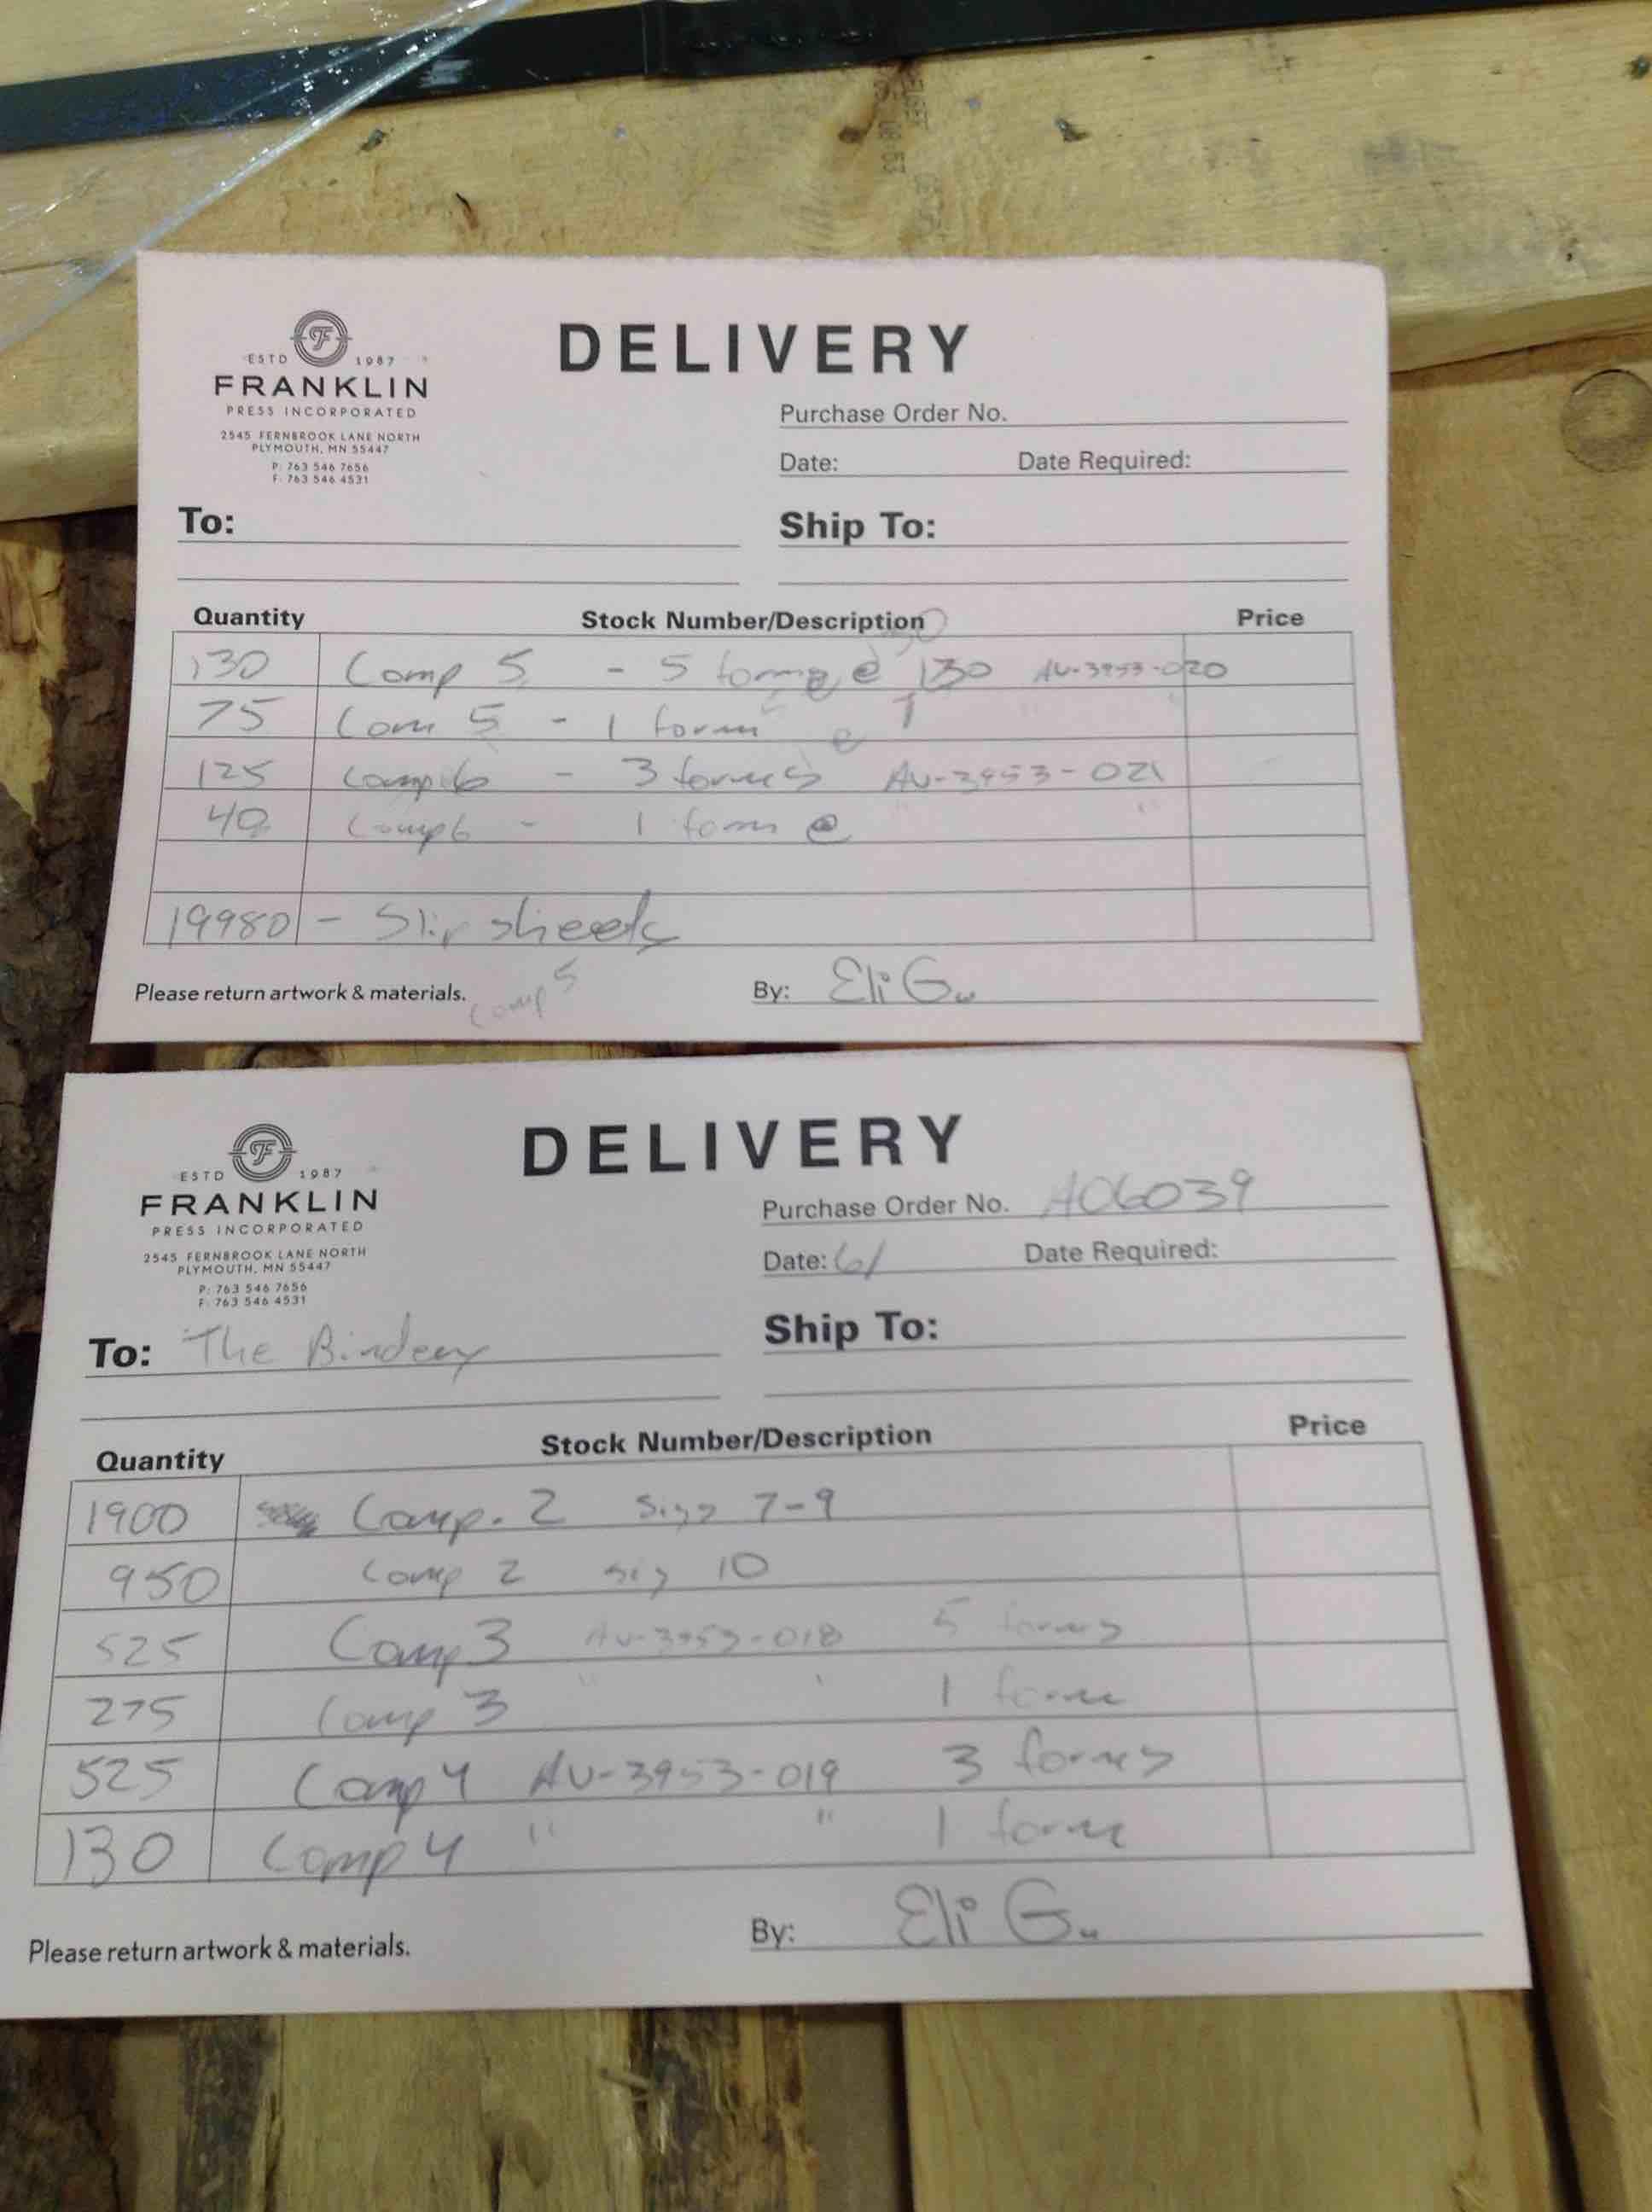 ESTD 1987
FRANKLIN
PRESS INCORPORATED
2545 FERNBROOK LANE NORTH
PLYMOUTH, MN 55447
P: 763 546 7656
F: 763 546 4531
DELIVERY
Purchase Order No.
Date: Date Required:
To: Ship To:
Quantity Stock Number/Description Price
130 Comp 5 - 5 forms @ 130 AV-3953-020
75 Com 5 - 1 form @
125 Comp 6 - 3 forms AV-3953-021
40 Comp 6 - 1 form @
19980 - Slip sheets
Please return artwork & materials. Comp 5 By: Eli G.
ESTD 1987
FRANKLIN
PRESS INCORPORATED
2545 FERNBROOK LANE NORTH
PLYMOUTH, MN 55447
P: 763 546 7656
F: 763 546 4531
DELIVERY
Purchase Order No. A06039
Date: 6/ Date Required:
To: The Bindery Ship To:
Quantity Stock Number/Description Price
1900 Comp. 2 Sigs 7-9
950 Comp 2 sig 10
525 Comp 3 AV-3953-018 5 forms
275 Comp 3 " " 1 form
525 Comp 4 AV-3953-019 3 forms
130 Comp 4 " " 1 form
Please return artwork & materials. By: Eli G.